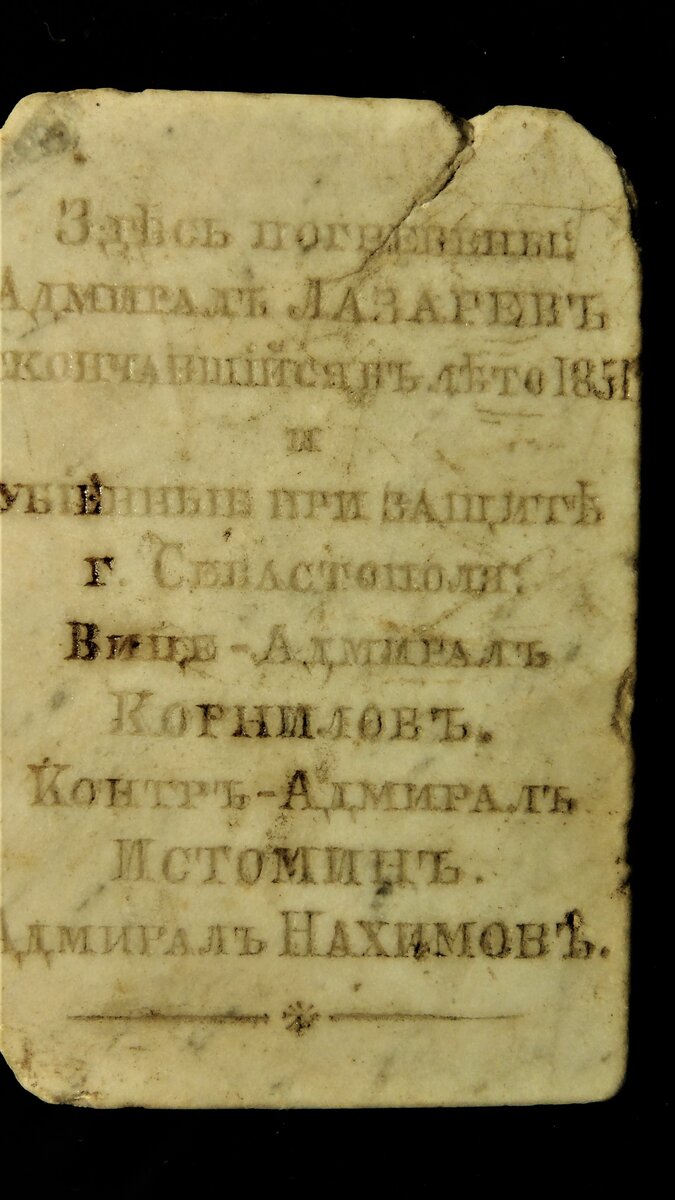 Здѣсь погребены:
Адмиралъ Лазаревъ
скончавшійся въ лѣто 1851
и
убіенные при защитѣ
г. Севастополя:
Вице-Адмиралъ
Корниловъ.
Контръ-Адмиралъ
Истоминъ.
Адмиралъ Нахимовъ.